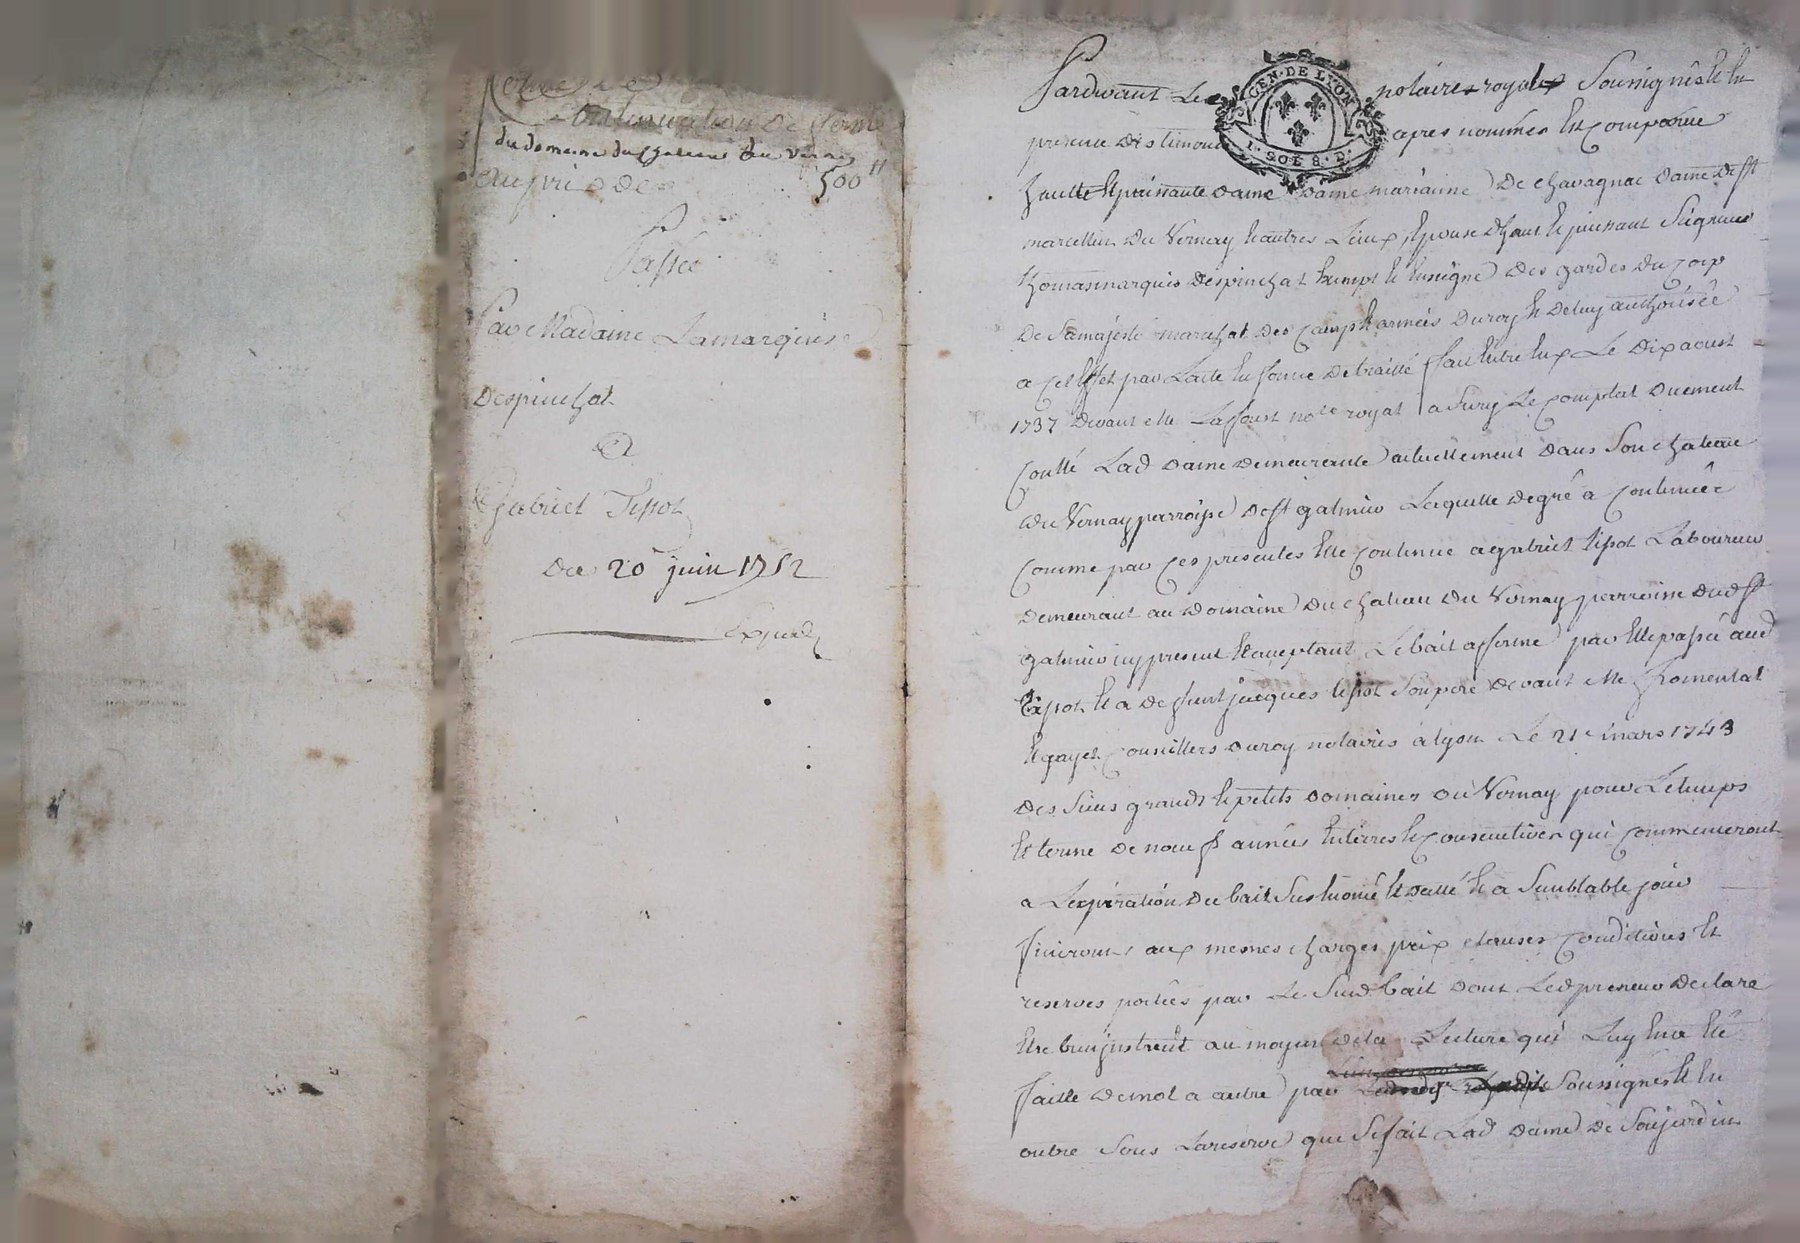 continuation de ferme
du domaine du chateau du vernay
au prix de 500 ll
Passée
Par Madame La marquise
Despinchat
A
Gabriel Tissot
Du 20 juin 1752
Expedz
GEN. DE LYON
Pardevant Les notaires royal Soussignés Et En
presence des temoins apres nommés Est comparue
haulte Et puissante dame Dame marianne De chavagnac dame de St
marcellin Du Vernay Et autres Lieux, Epouse d'haut Et puissant Seigneur
thomas marquis Despinchat Exempt Et Enseigne Des gardes du corp
De Sa majesté marechal des camp Et armées du roy Et de luy authorisée
a cet Effet par L'acte En forme de traitté fait Entre Eux Le dix aoust
1737 devant Me Lafoust note royal a Sury Le comptal duement
coullé Lad dame demeurante actuellement dans Son chateau
du Vernay parroisse de St galmier Laquelle de gré a continué
comme par ces presentes Elle continue a gabriel tissot Laboureur
demeurant au domaine du chateau du Vernay parroisse dud St
galmier icy present Et acceptant Le bail a ferme par Elle passé aud
tissot Et a deffunt jacques tissot Son pere devant Me fromental
Et gayet conseillers du roy notaires a lyon Le 21e mars 1743
des Siens grands Et petits domaines du Vernay pour Le temps
Et terme de noeuf années Entieres Et consecutives qui commenceront
a L'expiration du bail Sus Enoncé Et datté Et a Semblable jour
finiront aux mesmes charges prix clauses conditions Et
reserves portées par Le Susd bail dont Led preneur declare
Etre bien instruit au moyen de la Lecture qui Luy En a Eté
faitte de mot a autre par Soussignés Et En
outre Sous La reserve que Se fait Lad dame de Son jardin